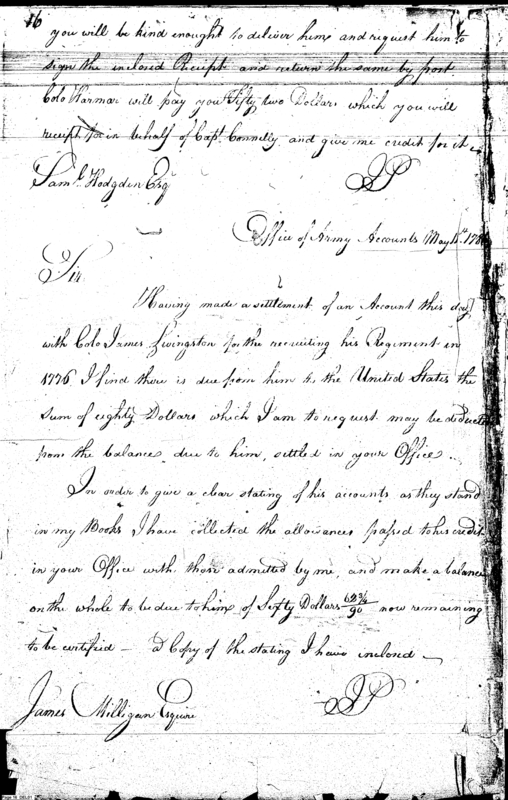 16
you will be kind enought to deliver him, and request him to
sign the inclosed Receipt and return the same by post
Colo Harmar will pay you Fifty two Dollars which you will
receipt for in behalf of Capt. Connelly and give me credit for it.
Saml. Hodgden Esqr
JP
Office of Army Accounts May
Sir
Having made a settlement of an Account this day
with Colo James Livingston for the recruiting his Regiment in
1776 I find there is due from him to the United States the
Sum of eighty Dollars which I am to request may be deducted
from the balance due to him, settled in your Office.
In order to give a clear stating of his accounts as they stand
in my Books, I have collected the allowances passed to his credit
in your Office with those admitted by me, and make a balance
on the whole to be due to him, of Sixty Dollars /90 now remaining
to be certified — a Copy of the stating I have inclosed —
JP
James Milligan Esquire